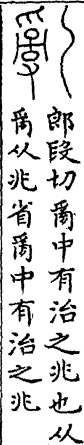 郎段切𤔔中有治之也从
𤔔从兆省𤔔中有治之兆